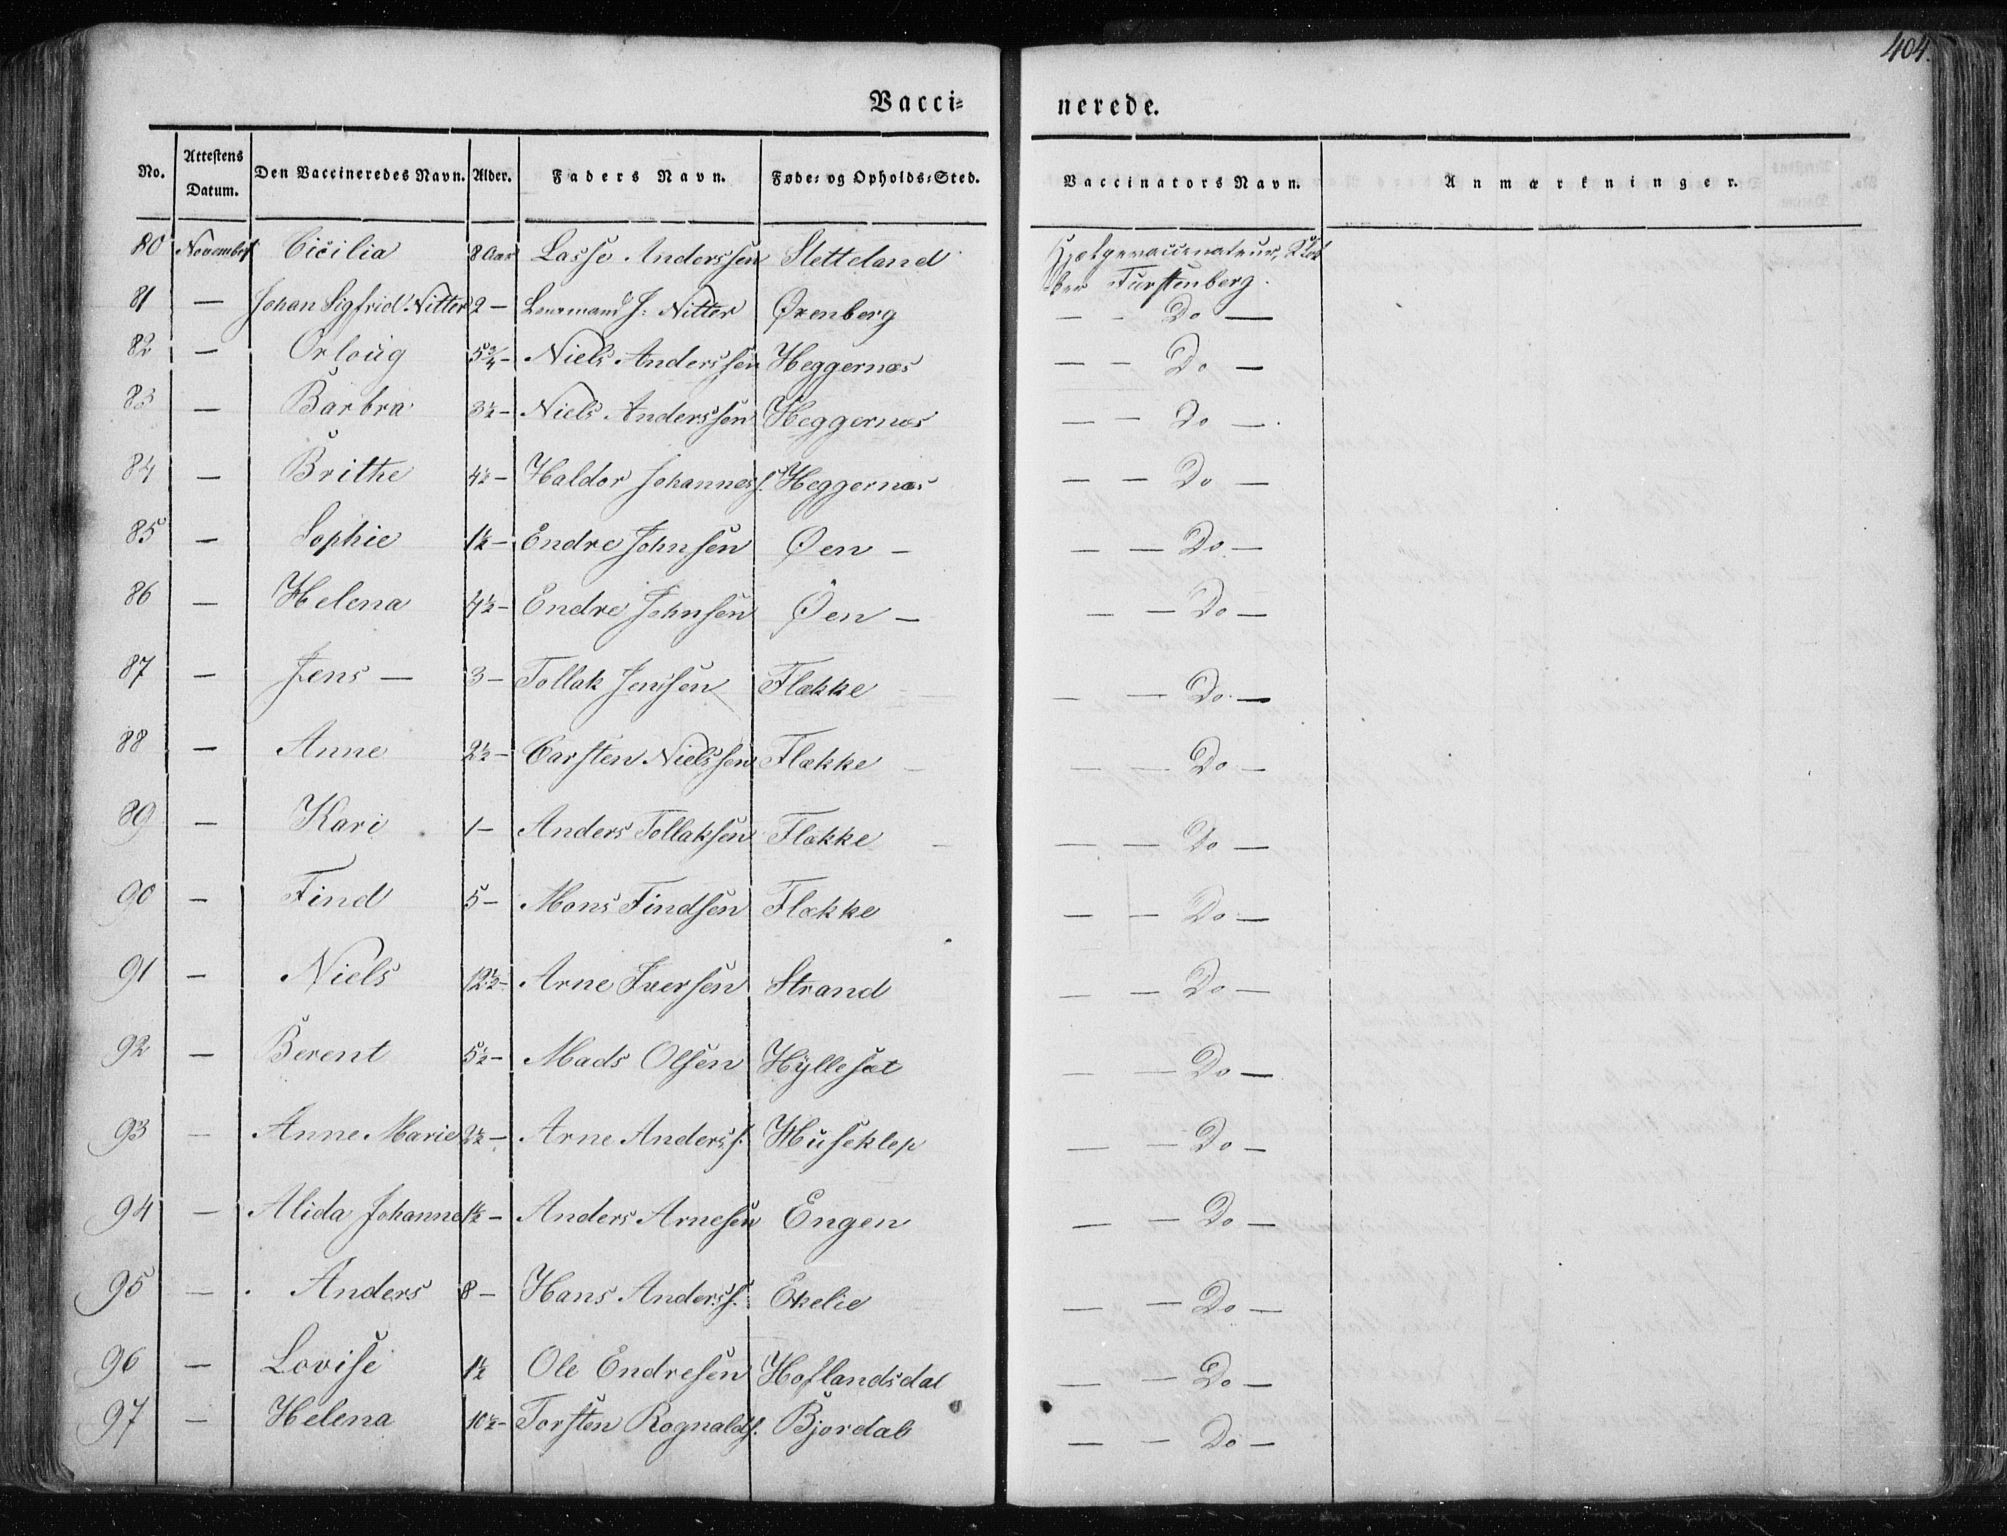 404.
Vacci= nerede.
No. Attestens Datum. Den Vaccineredes Navn. Alder. Faders Navn. Føde= og Opholds=Sted. Vaccinators Navn. Anmærkninger.
80 November Cicilia 8 Aar Lasse Anderssen Stetteland Hjælpevaccinateur
Furstenberg.
81 — Johan Sigfried Nitter 2 — Lensmand J: Nitter Øxenberg — - Do —
82 — Orloug 5 3/4 — Niels Anderssen Heggernæs — — Do —
83 — Barbra 3 1/2 — Niels Anderssen Heggernæs — — Do —
84 — Brithe 4 1/2 — Haldor Johanness. Heggernæs — — Do —
85 — Sophie 1 1/2 — Endre Johnsen Øen — — — Do —
86 — Helena 4 1/2 — Endre Johnsen Øen — — — Do —
87 — Jens — 3 — Tollak Jensen Flække — — Do —
88 — Anne 2 1/2 — Carsten Nielssen Flække — — Do —
89 — Kari 1 — Anders Tollaksen Flække — — Do —
90 — Find 5 — Mons Findsen Flække — — Do —
91 — Niels 12 1/2 — Arne Iversen Strand — — Do —
92 — Berent 5 1/2 — Mads Olsen Hyllesæt — — Do —
93 — Anne Marie 2 1/2 — Arne Anderss. Museklep — — Do —
94 — Alida Johanne 1 1/2 — Anders Arnesen Engen — — Do —
95 — Anders 8 — Hans Anderss. Ekelie — — Do —
96 — Lovise 1 1/2 Ole Endresen Hoflandsdal — — Do —
97 — Helena 10 1/2 — Torsten Rognalds. Bjordal — — Do —